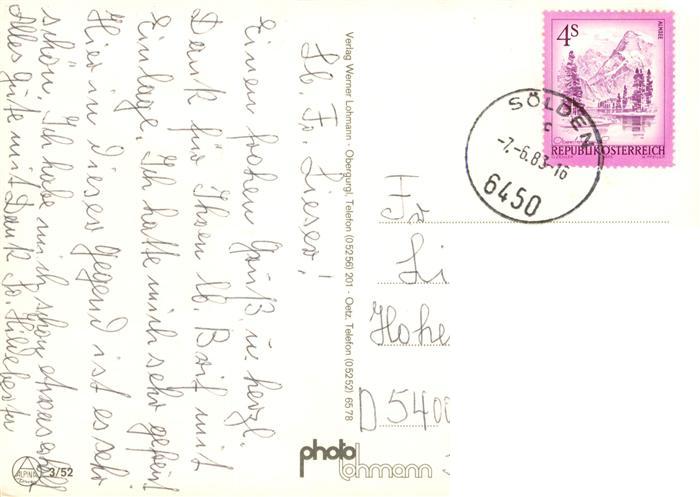 Lb. Fr. Lieser!
Einen frohen Gruß u. herzl.
Dank für Ihren lb. Brief mit
Einlage. Ich hatte mich sehr gefreut
Hier in dieser Gegend ist es sehr
schön. Ich habe mich schon etwas erholt
Alles gute mit Dank
Verlag Werner Lohmann - Obergurgl, Telefon (05256) 201 - Oetz, Telefon (05252) 6578
ALPINA
3/52
photo
lohmann
4S
ALMSEE
REPUBLIK ÖSTERREICH
SÖLDEN
c
-7.-6.83-16
6450
Fr
Li
Hohe
D 5400